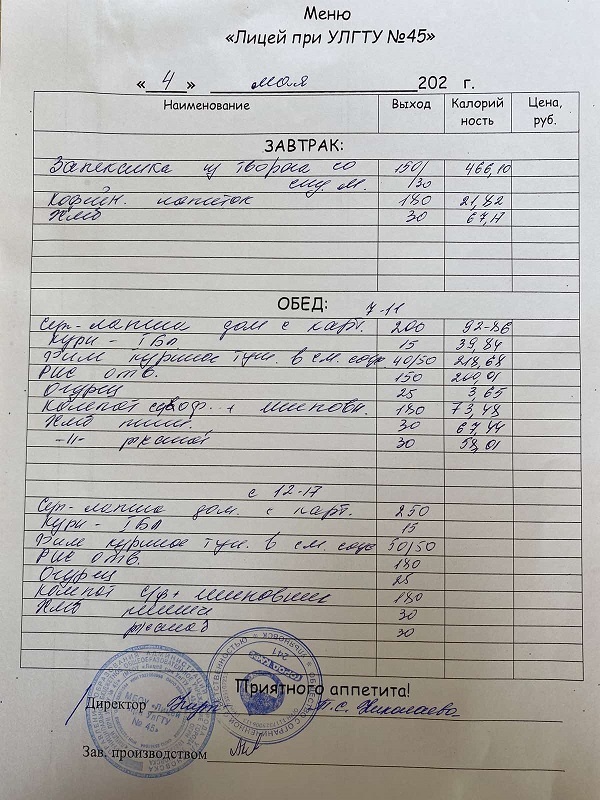 Меню
«Лицей при УЛГТУ №45»
« 4 » мая 202 г.
Наименование Выход Калорийность Цена, руб.
ЗАВТРАК:
Запеканка из творога со 150/ 466,10
сгу. м. /30
Кофейн. напиток 180 21,82
Хлеб 30 67,17
ОБЕД: 7-11
Суп-лапша дом с карт. 200 92-86
Куры - I бл 15 39,84
Филе куриное туш. в см. соусе 40/50 218,68
Рис отв. 150
Огурец 25 3,65
Компот + шиповн. 180 73,48
Хлеб пшен. 30 67,44
-//- ржаной 30 58,01
с 12-17
Суп-лапша дом. с карт. 250
Куры - I бл 15
Филе куриное туш. в см. соусе 50/50
Рис отв. 180
Огурец 25
Компот с/ф + шиповник 180
Хлеб пшен 30
ржаной 30
Приятного аппетита!
Директор П.С. Николаева
МБОУ «Лицей при УлГТУ № 45»
Зав. производством